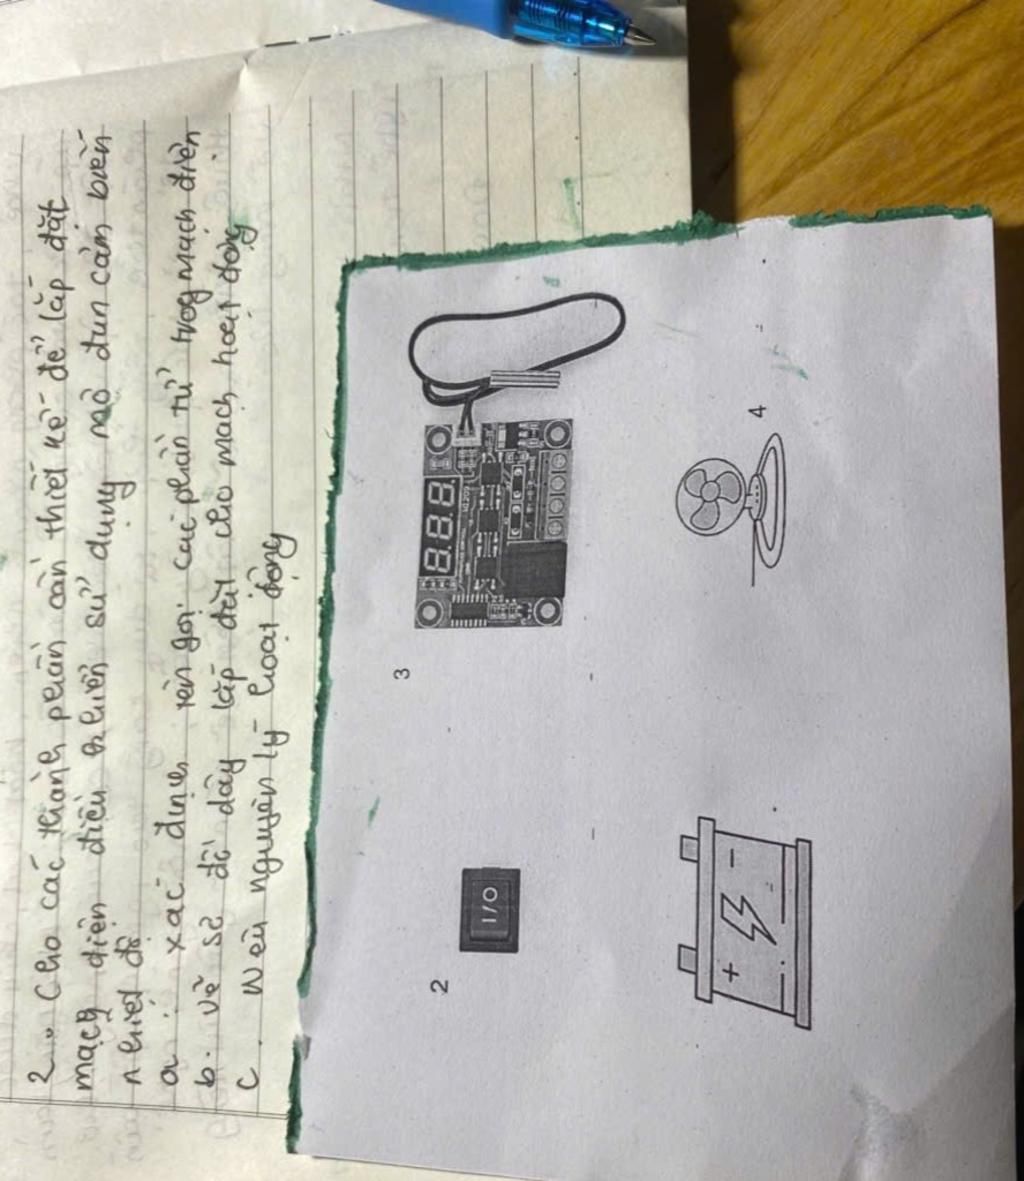 2. Cho các thành phần cần thiết kế để lắp đặt
mạch điện điều khiển sử dụng mô đun cảm biến
nhiệt độ
a. xác định tên gọi các phần tử trong mạch điện
b. vẽ sơ đồ dây lắp đặt cho mạch hoạt động
c. Nêu nguyên lý hoạt động
2
I/O
3
8.8.8
+
-
4